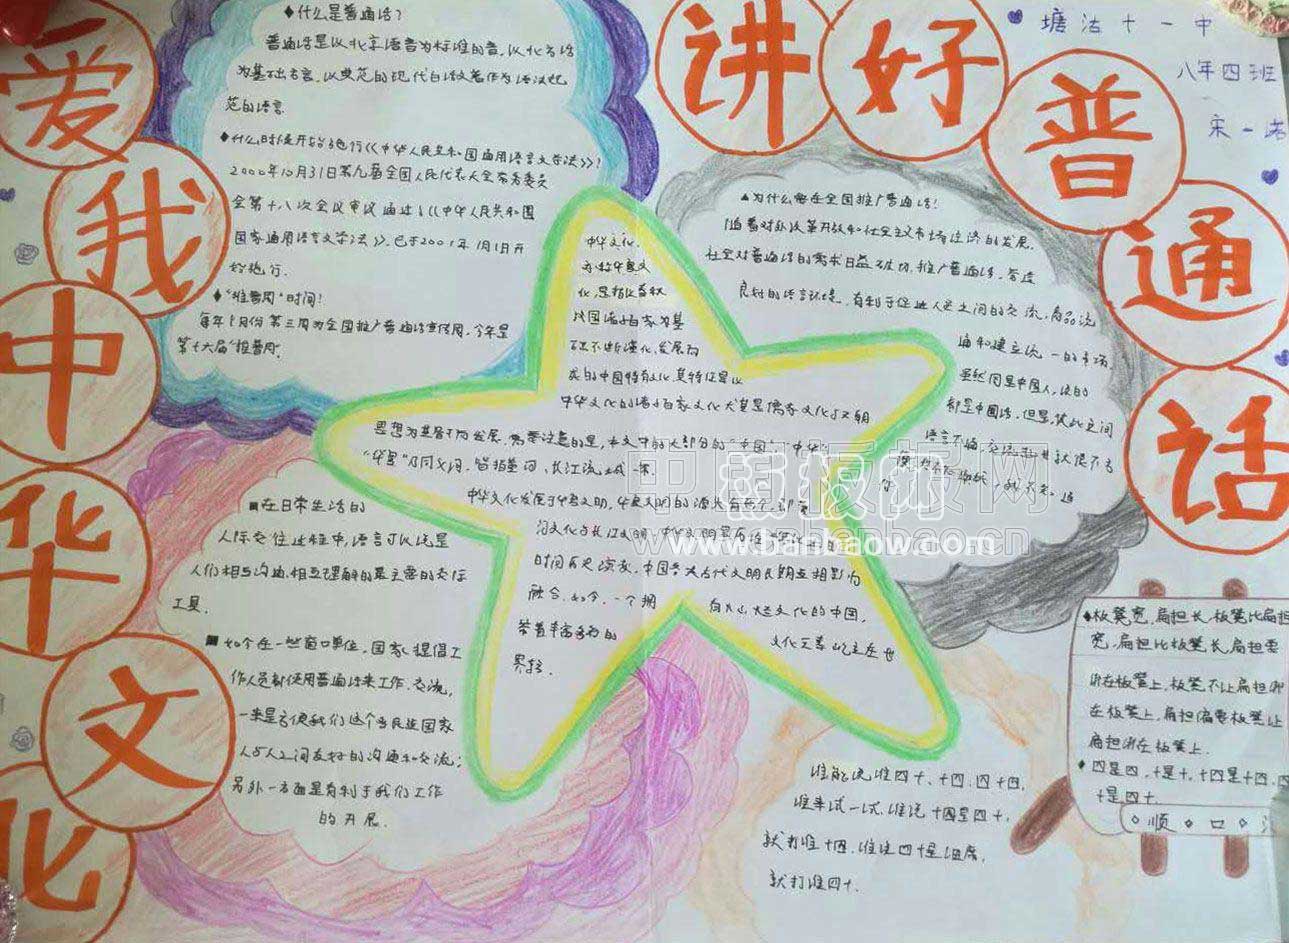 讲好普通话
爱我中华文化
塘沽十一中
八年四班
宋一诺
◆什么是普通话?
普通话是以北京语音为标准的音,以北方话
为基础方言,以典范的现代白话文著作为语法规
范的语言
◆什么时候开始施行《《中华人民共和国通用语言文字法》》!
2000年10月31日第九届全国人民代表大会常务委员
会第十八次会议审议通过《《中华人民共和国
国家通用语言文字法》》,已于2001年1月1日开
始施行.
◆"推普周"时间!
每年9月份第三周为全国推广普通话宣传周,今年是
第十六届"推普周".
▲为什么要在全国推广普通话!
随着对外改革开放和社会主义市场经济的发展,
社会对普通话的需求日益迫切.推广普通话,营造
良好的语言环境,有利于促进人与人之间的交流,商品流
通和建立统一的市场.
虽然同是中国人,说的
都是中国话,但是,彼此之间
语言不通,交流
中华文化,
亦称华夏文
化,是指以春秋
战国诸子百家为基
础不断演化、发展而
成的中国特有文化.其特征是以
中华文化的诸子百家文化尤其是儒家文化
思想为基础而发展,需要注意的是,本文中的大部分的"中国""中华"
"华夏"为同义词,皆指黄河、长江流域一带.
中华文化发展于华夏文明,华夏文明的源头有两个,即黄
河文化与长江文明,中华文明
时间历史演变,中国各大古代文明长期互相影响
融合.如今,一个拥有
灿烂文化的中国,
带着丰富多彩的
文化元素屹立在世
界东方.
■在日常生活的
人际交往过程中,语言可以说是
人们相互沟通,相互理解的最主要的交际
工具.
■如今在一些窗口单位,国家提倡工
作人员都使用普通话来工作、交流,
一来是方便我们这个多民族国家
人与人之间友好的沟通和交流;
另外一方面是有利于我们工作
的开展.
◆板凳宽,扁担长,板凳比扁担
宽,扁担比板凳长,扁担要
绑在板凳上,板凳不让扁担绑
在板凳上,扁担偏要板凳让
扁担绑在板凳上.
◆四是四,十是十,十四是十四,四
十是四十.
◇顺◇口◇
谁能说准四十、十四、四十四,
谁来试一试,谁说十四是四十,
就打谁十四,谁说四十是细席,
就打谁四十.
中国板报网
www.banbaow.com